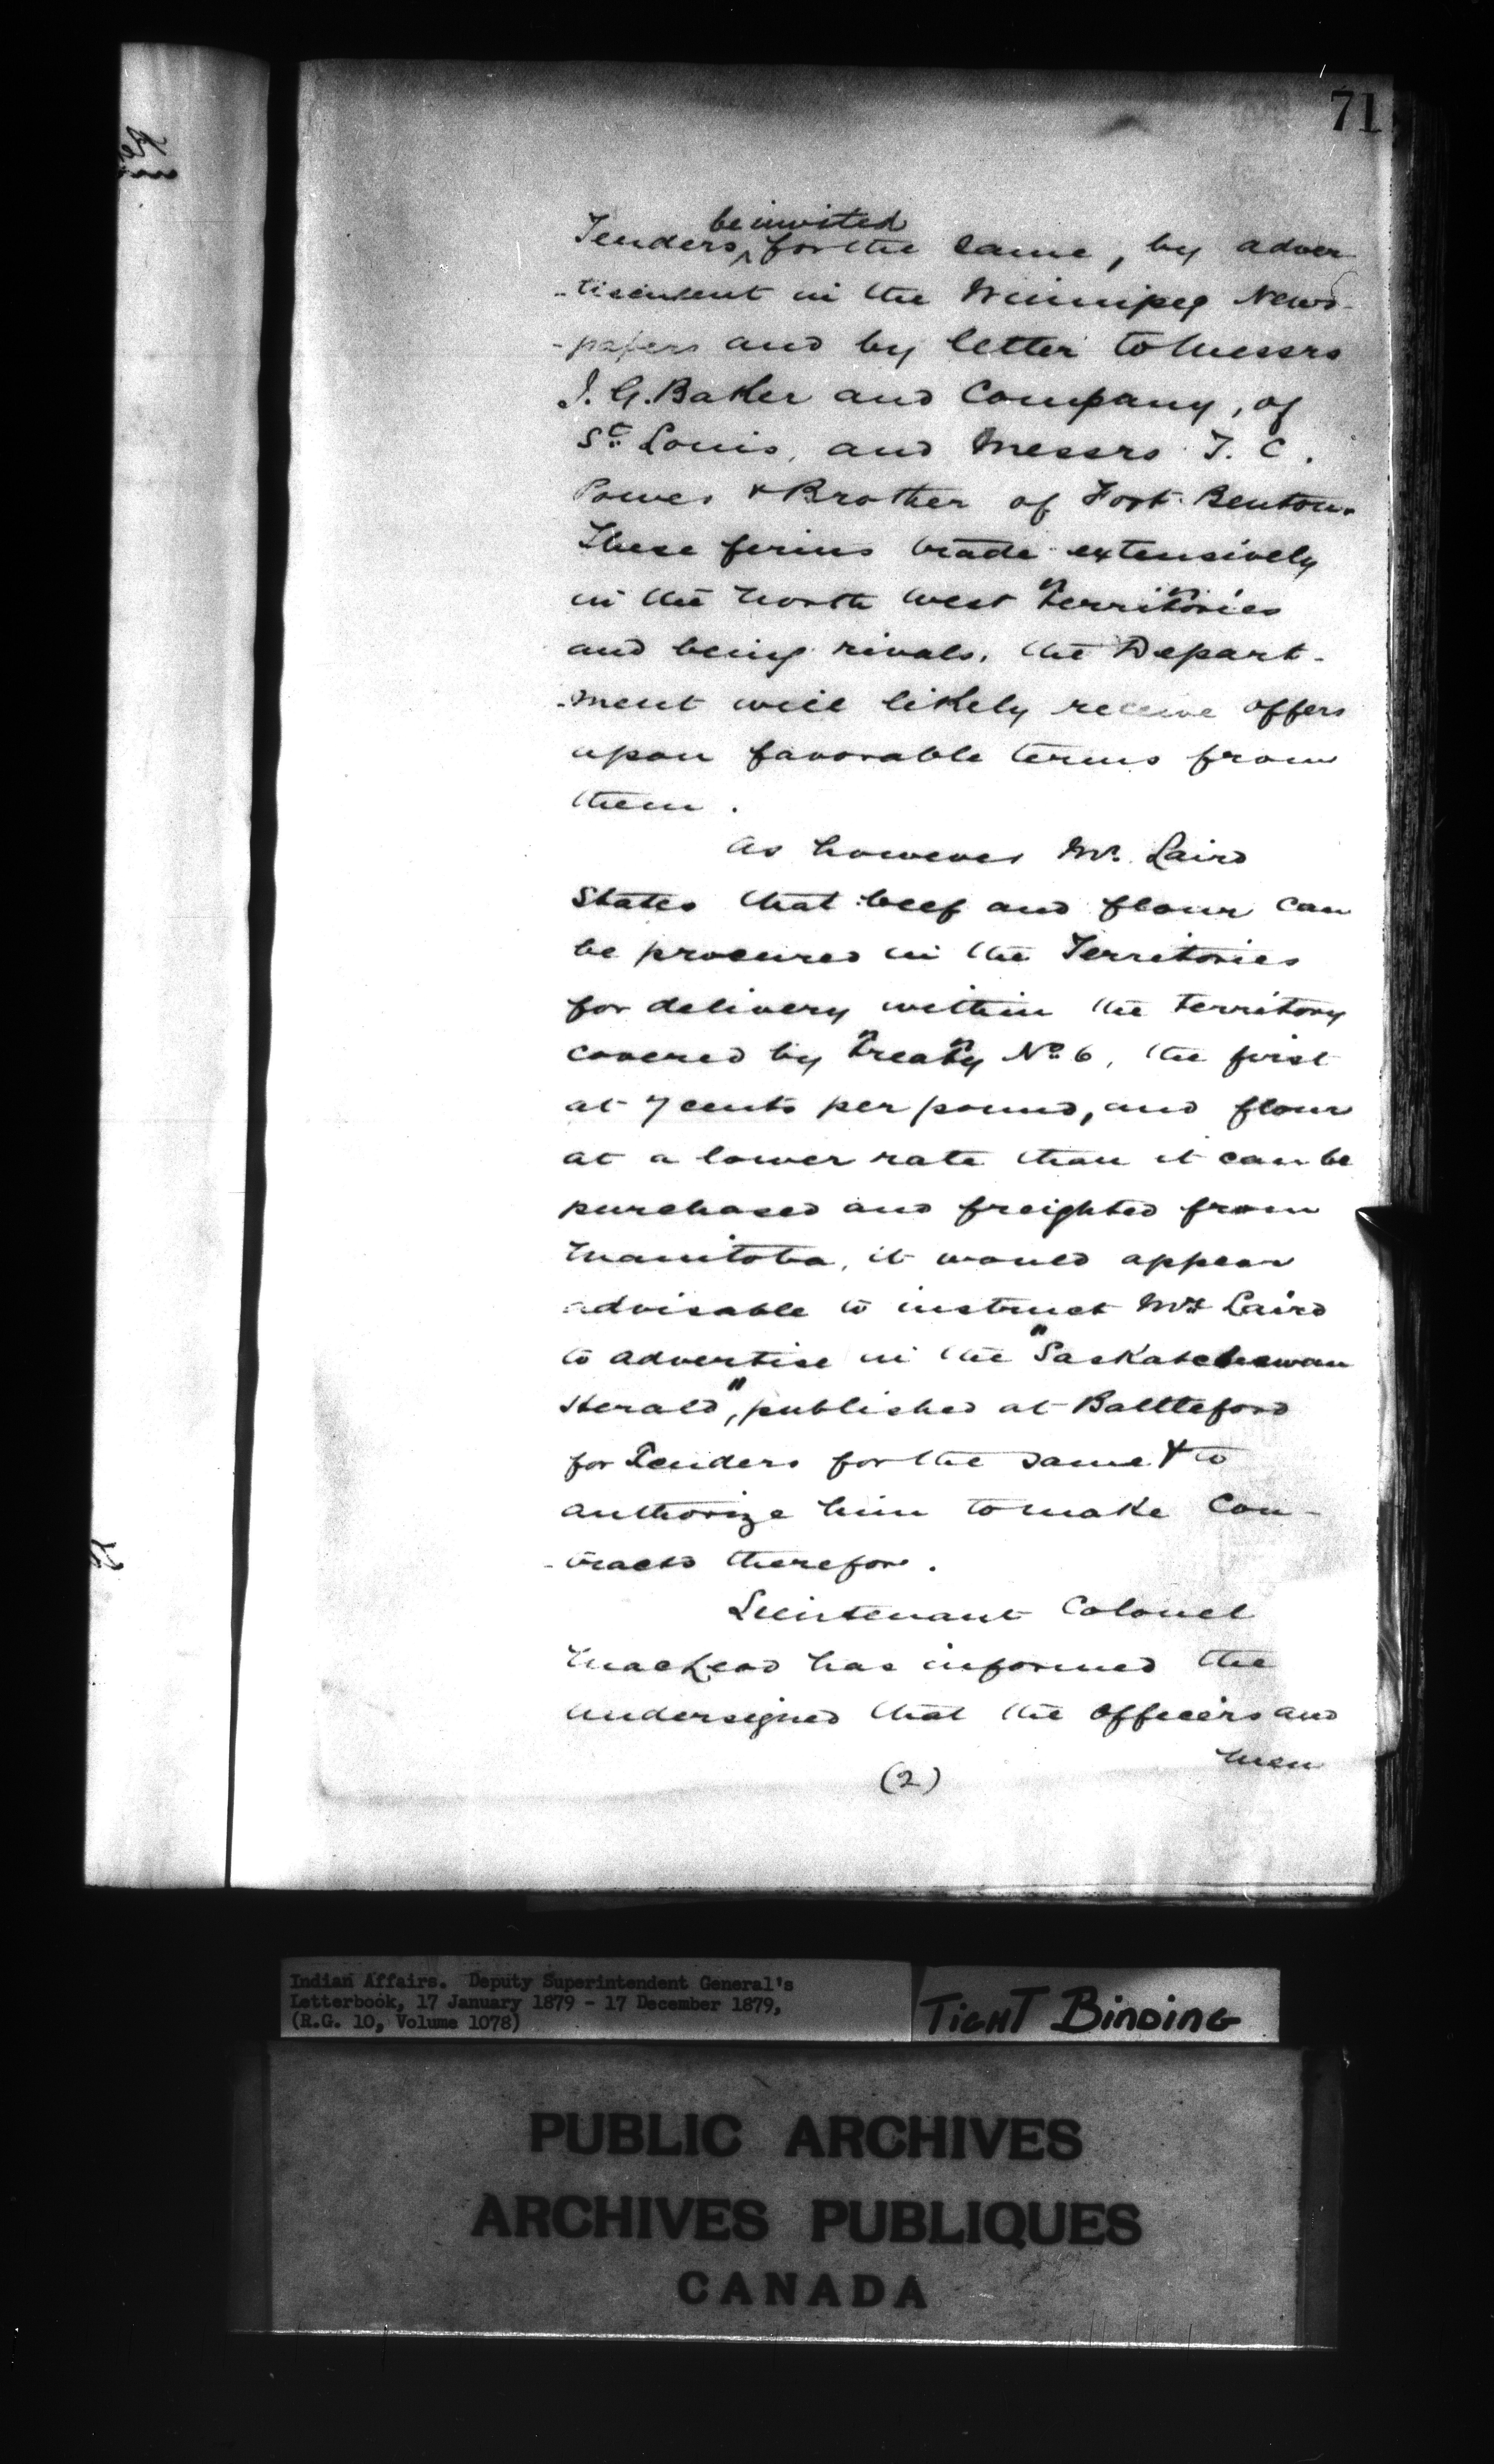 71
be invited
Tenders ^ for the same, by adver
-tisement in the Winnipeg News-
-papers and by letter to Messrs
I. G. Baker and Company, of
St. Louis, and Messrs T. C.
Power & Brother of Fort Benton.
These firms trade extensively
in the North West Territories
and being rivals, the Depart-
-ment will likely receive offers
upon favorable terms from
them.
As however Mr. Laird
States that beef and flour can
be procured in the Territories
for delivery within the territory
covered by Treaty No. 6, the first
at 7 cents per pound, and flour
at a lower rate than it can be
purchased and freighted from
Manitoba, it would appear
advisable to instruct Mr. Laird
to advertise in the "Saskatchewan
Herald", published at Battleford
for Tenders for the same & to
authorize him to make Con-
-tracts therefor.
Lieutenant Colonel
MacLeod has informed the
undersigned that the Officers and
Men
(2)
Indian Affairs. Deputy Superintendent General's
Letterbook, 17 January 1879 - 17 December 1879,
(R.G. 10, Volume 1078)
TIGHT BINDING
PUBLIC ARCHIVES
ARCHIVES PUBLIQUES
CANADA